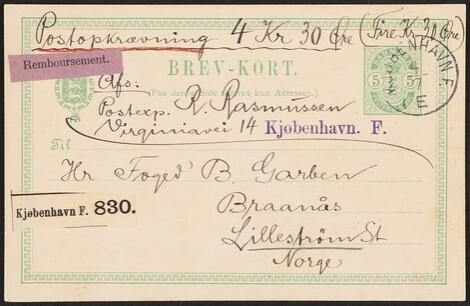 Postopkrævning 4 Kr 30 Øre (Fire Kr 30 Øre)
Remboursement.
KJØBENHAVN. F.
E
5 5
BREV-KORT.
(Paa denne Side skrives kun Adressen.)
Afs:
Postexp. R. Rasmussen
Virginiavei 14 Kjøbenhavn. F.
Til
Hr Foged B. Garben
Kjøbenhavn F. 830.
Braanås
Lillestrøm St
Norge